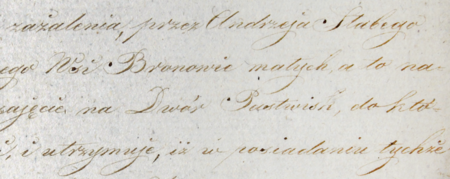 zażalenia, przez Andrzeja Słabego
ego Wsi Bronowic małych, a to na-
zajęcie na Dwór Pustwisk, do któ-
i utrzymuje, iż w posiadaniu tychże